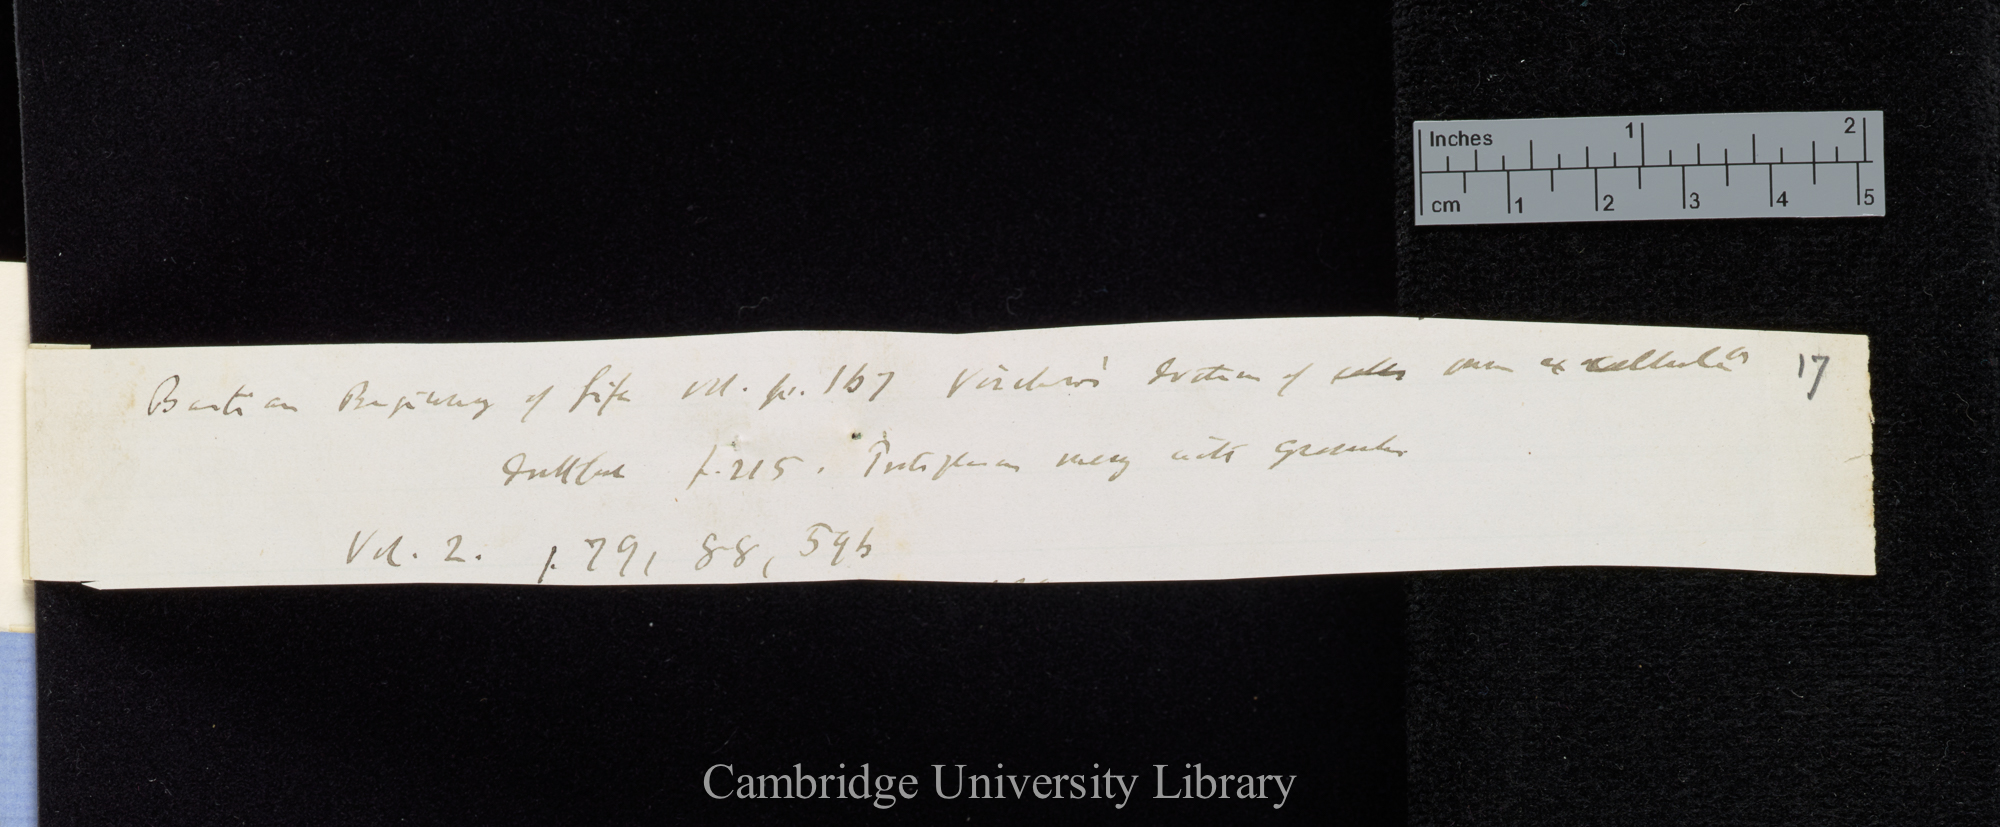 Inches 1 2
cm 1 2 3 4 5
Bastian Beginning of Life vol. p. 167 Virchow's doctrine of cellula 17
doubtful p. 215. Protoplasm with granules
Vol. 2. p. 79, 88, 596
Cambridge University Library